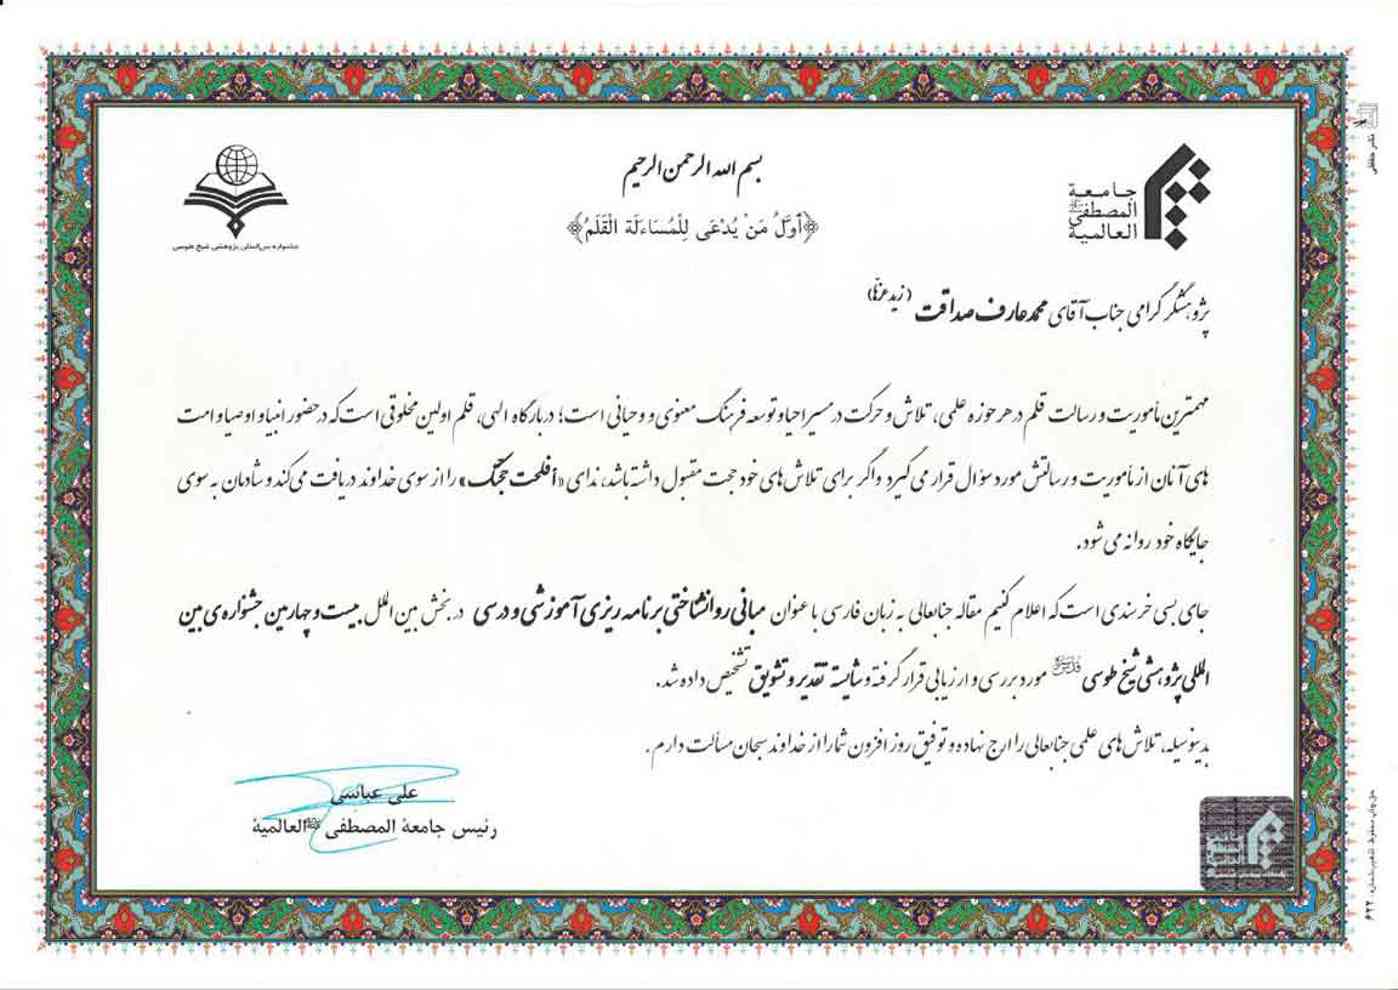 بسم الله الرحمن الرحیم
﴿أَوَّلُ مَنْ یُدْعَی لِلْمُسَاءَلَة الْقَلَمُ﴾
جامعة
المصطفی
العالمیة
جشنواره بین‌المللی پژوهشی شیخ طوسی
پژوهشگر گرامی جناب آقای محمد عارف صداقت (زید عزّه)
مهمترین مأموریت و رسالت قلم در هر حوزه علمی، تلاش و حرکت در مسیر احیا و توسعه فرهنگ معنوی و وحیانی است؛ در بارگاه الهی، قلم اولین مخلوقی است که در حضور انبیا و اوصیا و امت
های آنان از مأموریت و رسالتش مورد سؤال قرار می گیرد و اگر برای تلاش های خود حجت مقبول داشته باشد، ندای «أفلحت حجتک» را از سوی خداوند دریافت می کند و شادمان به سوی
جایگاه خود روانه می شود.
جای بسی خرسندی است که اعلام کنیم مقاله جنابعالی به زبان فارسی با عنوان مبانی روانشناختی برنامه ریزی آموزشی و درسی در بخش بین الملل بیست و چهارمین جشنواره ی بین
المللی پژوهشی شیخ طوسی مورد بررسی و ارزیابی قرار گرفته و شایسته تقدیر و تشویق تشخیص داده شد.
بدینوسیله، تلاش های علمی جنابعالی را ارج نهاده و توفیق روز افزون شما را از خداوند سبحان مسألت دارم.
علی عباسی
رئیس جامعة المصطفی العالمیة